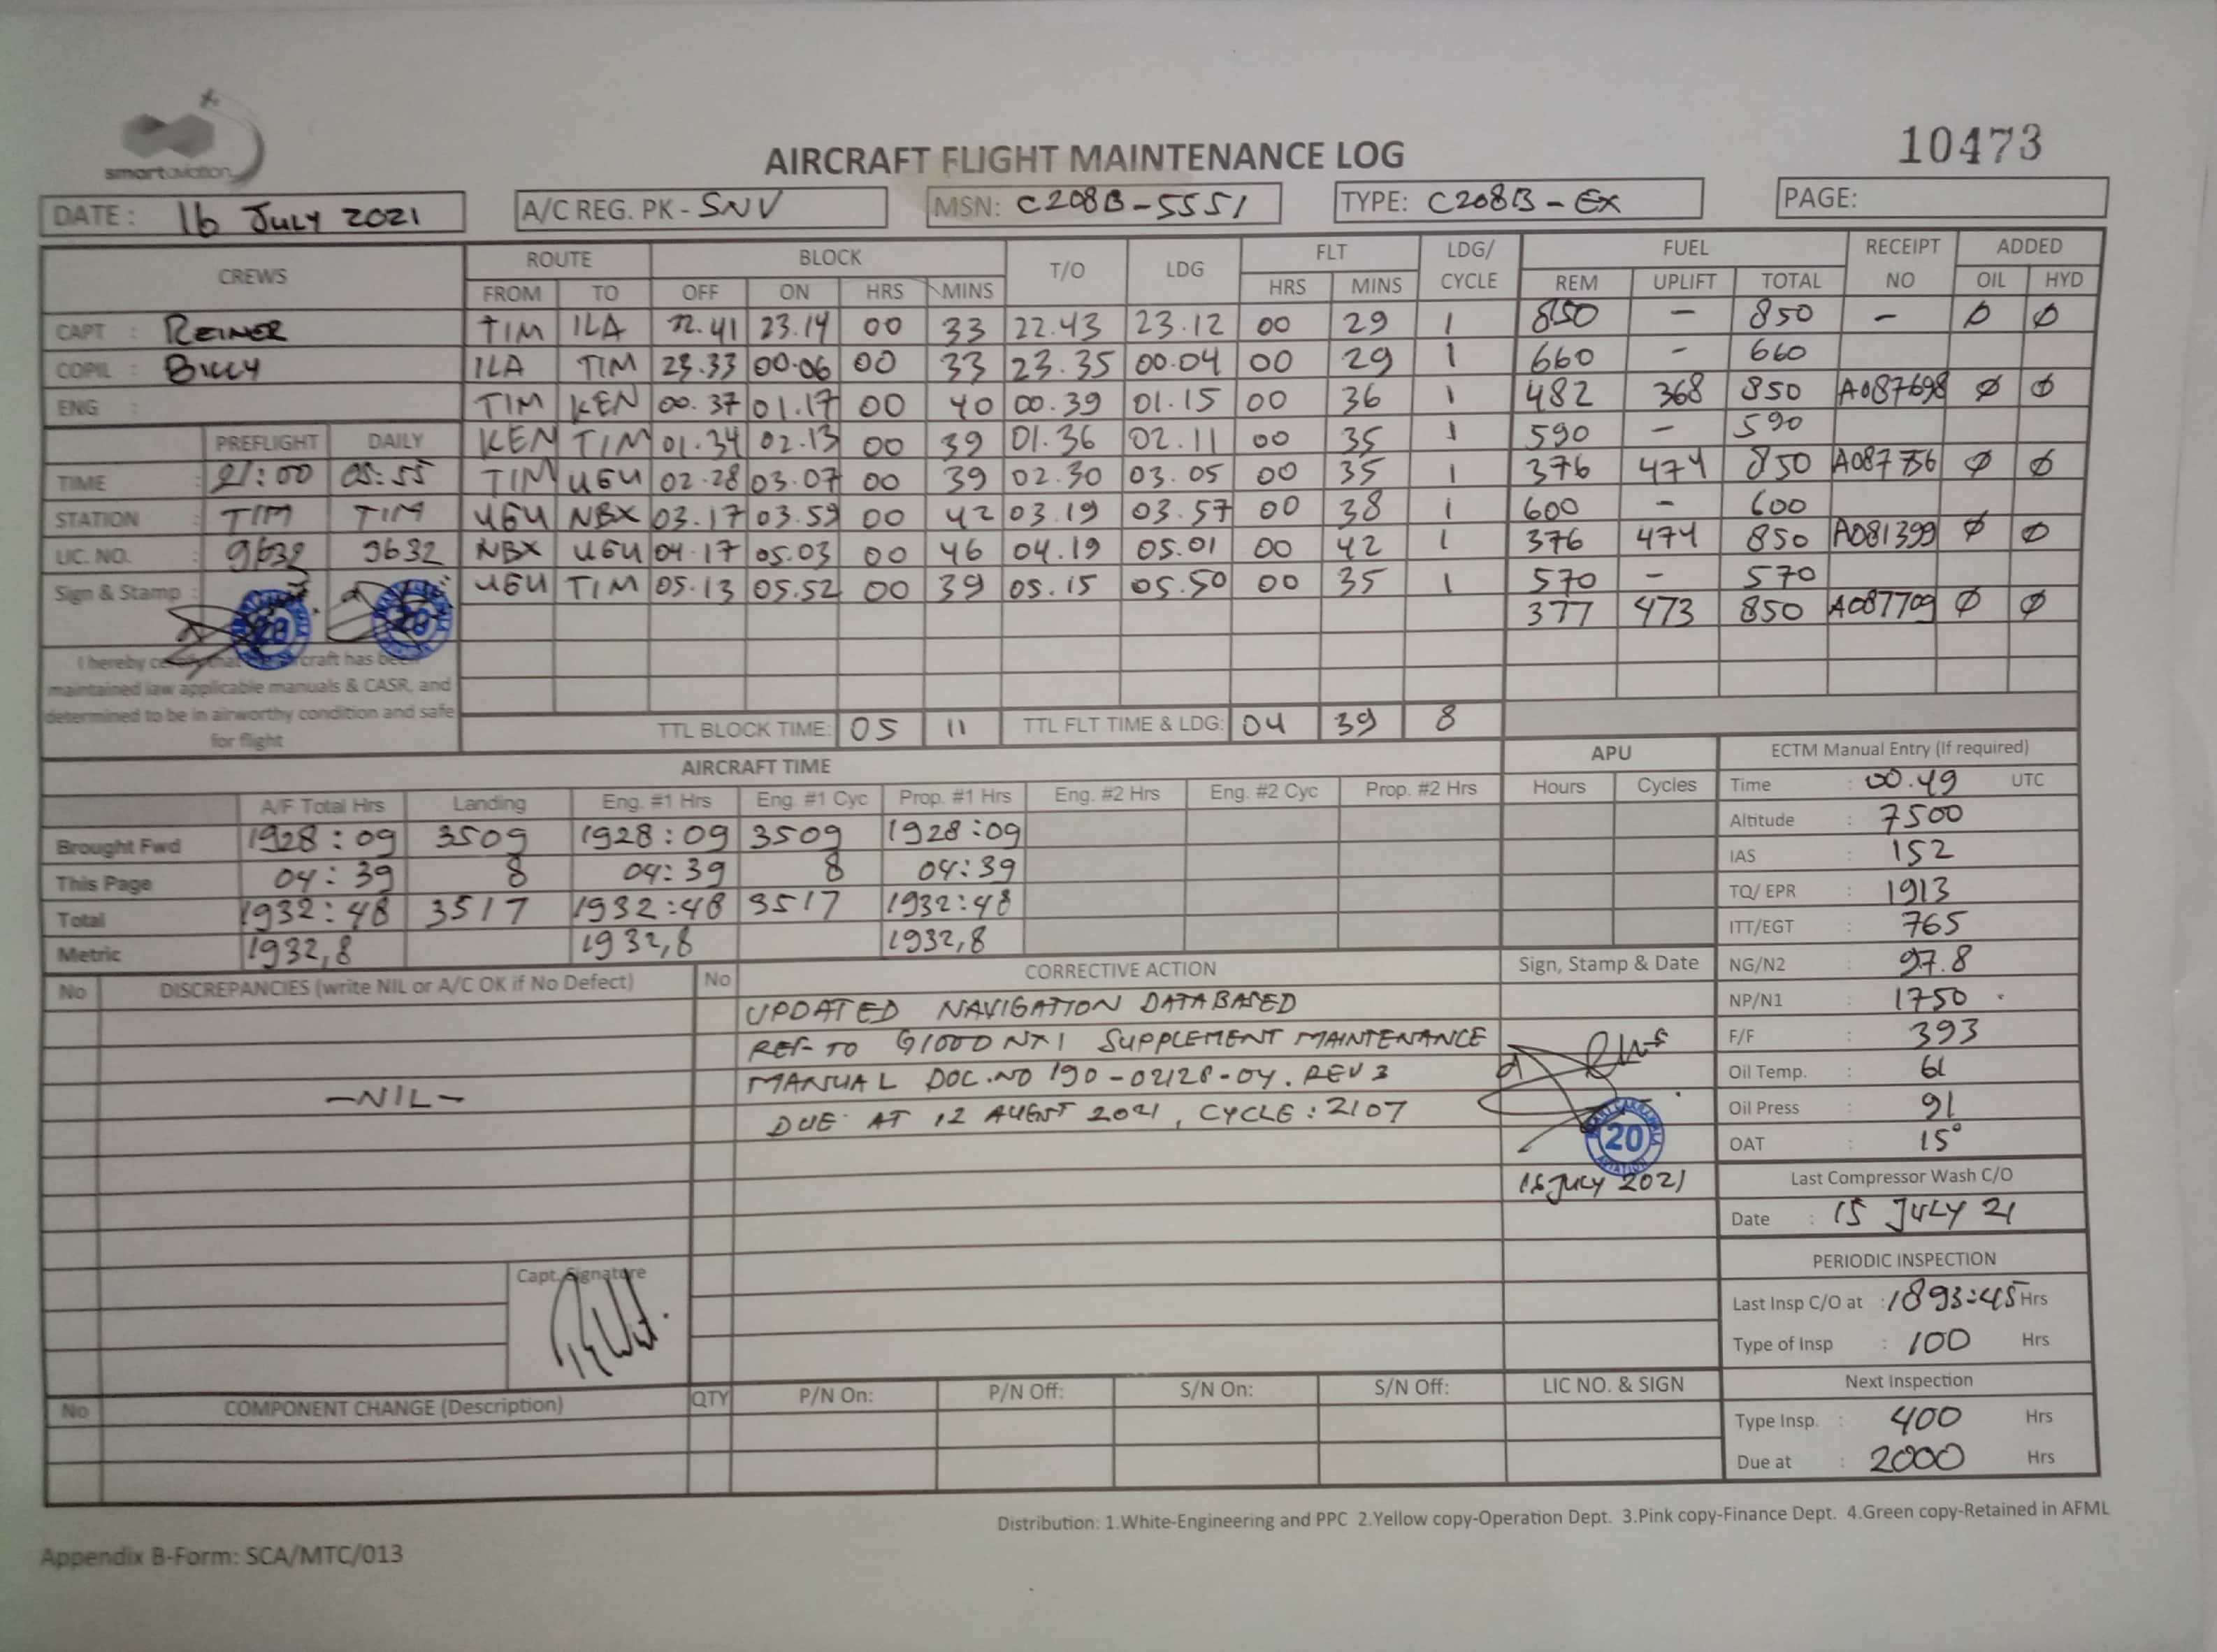 smartaviation
10473
AIRCRAFT FLIGHT MAINTENANCE LOG
DATE: 16 JULY 2021 A/C REG. PK - SNV MSN: C208B-5551 TYPE: C208B-EX PAGE:
CREWS ROUTE BLOCK T/O LDG FLT LDG/ CYCLE FUEL RECEIPT NO ADDED
FROM TO OFF ON HRS MINS HRS MINS REM UPLIFT TOTAL OIL HYD
CAPT : REINER TIM ILA 22.41 23.14 00 33 22.43 23.12 00 29 1 850 - 850 - Ø Ø
COPIL : BILLY ILA TIM 23.33 00.06 00 33 23.35 00.04 00 29 1 660 - 660
ENG : TIM KEN 00.37 01.17 00 40 00.39 01.15 00 36 1 482 368 850 A087698 Ø Ø
PREFLIGHT DAILY KEN TIM 01.34 02.13 00 39 01.36 02.11 00 35 1 590 - 590
TIME : 21:00 05:55 TIM UGU 02.28 03.07 00 39 02.30 03.05 00 35 1 376 474 850 A087756 Ø Ø
STATION : TIM TIM UGU NBX 03.17 03.59 00 42 03.19 03.57 00 38 1 600 - 600
LIC. NO. : 9632 9632 NBX UGU 04.17 05.03 00 46 04.19 05.01 00 42 1 376 474 850 A081399 Ø Ø
Sign & Stamp : UGU TIM 05.13 05.52 00 39 05.15 05.50 00 35 1 570 - 570
377 473 850 A087709 Ø Ø
I hereby certify that the aircraft has been
maintained iaw applicable manuals & CASR, and
determined to be in airworthy condition and safe
for flight
TTL BLOCK TIME: 05 11 TTL FLT TIME & LDG: 04 39 8
AIRCRAFT TIME APU ECTM Manual Entry (If required)
A/F Total Hrs Landing Eng. #1 Hrs Eng. #1 Cyc Prop. #1 Hrs Eng. #2 Hrs Eng. #2 Cyc Prop. #2 Hrs Hours Cycles Time : 00.49 UTC
Brought Fwd 1928:09 3509 1928:09 3509 1928:09 Altitude : 7500
This Page 04:39 8 04:39 8 04:39 IAS : 152
Total 1932:48 3517 1932:48 3517 1932:48 TQ/ EPR : 1913
Metric 1932,8 1932,8 1932,8 ITT/EGT : 765
No DISCREPANCIES (write NIL or A/C OK if No Defect) No CORRECTIVE ACTION Sign, Stamp & Date NG/N2 : 97.8
UPDATED NAVIGATION DATABASED NP/N1 : 1750
REF TO G1000 NXI SUPPLEMENT MAINTENANCE F/F : 393
-NIL- MANUAL DOC.NO 190-02128-04. REV 3 Oil Temp. : 61
DUE AT 12 AUGUST 2021, CYCLE : 2107 Oil Press : 91
20 OAT : 15°
AVIATION
16 JULY 2021 Last Compressor Wash C/O
Date : 15 JULY 21
PERIODIC INSPECTION
Capt. Signature
Last Insp C/O at : 1893:45 Hrs
Type of Insp : 100 Hrs
No COMPONENT CHANGE (Description) QTY P/N On: P/N Off: S/N On: S/N Off: LIC NO. & SIGN Next Inspection
Type Insp. : 400 Hrs
Due at : 2000 Hrs
Distribution: 1.White-Engineering and PPC 2.Yellow copy-Operation Dept. 3.Pink copy-Finance Dept. 4.Green copy-Retained in AFML
Appendix B-Form: SCA/MTC/013